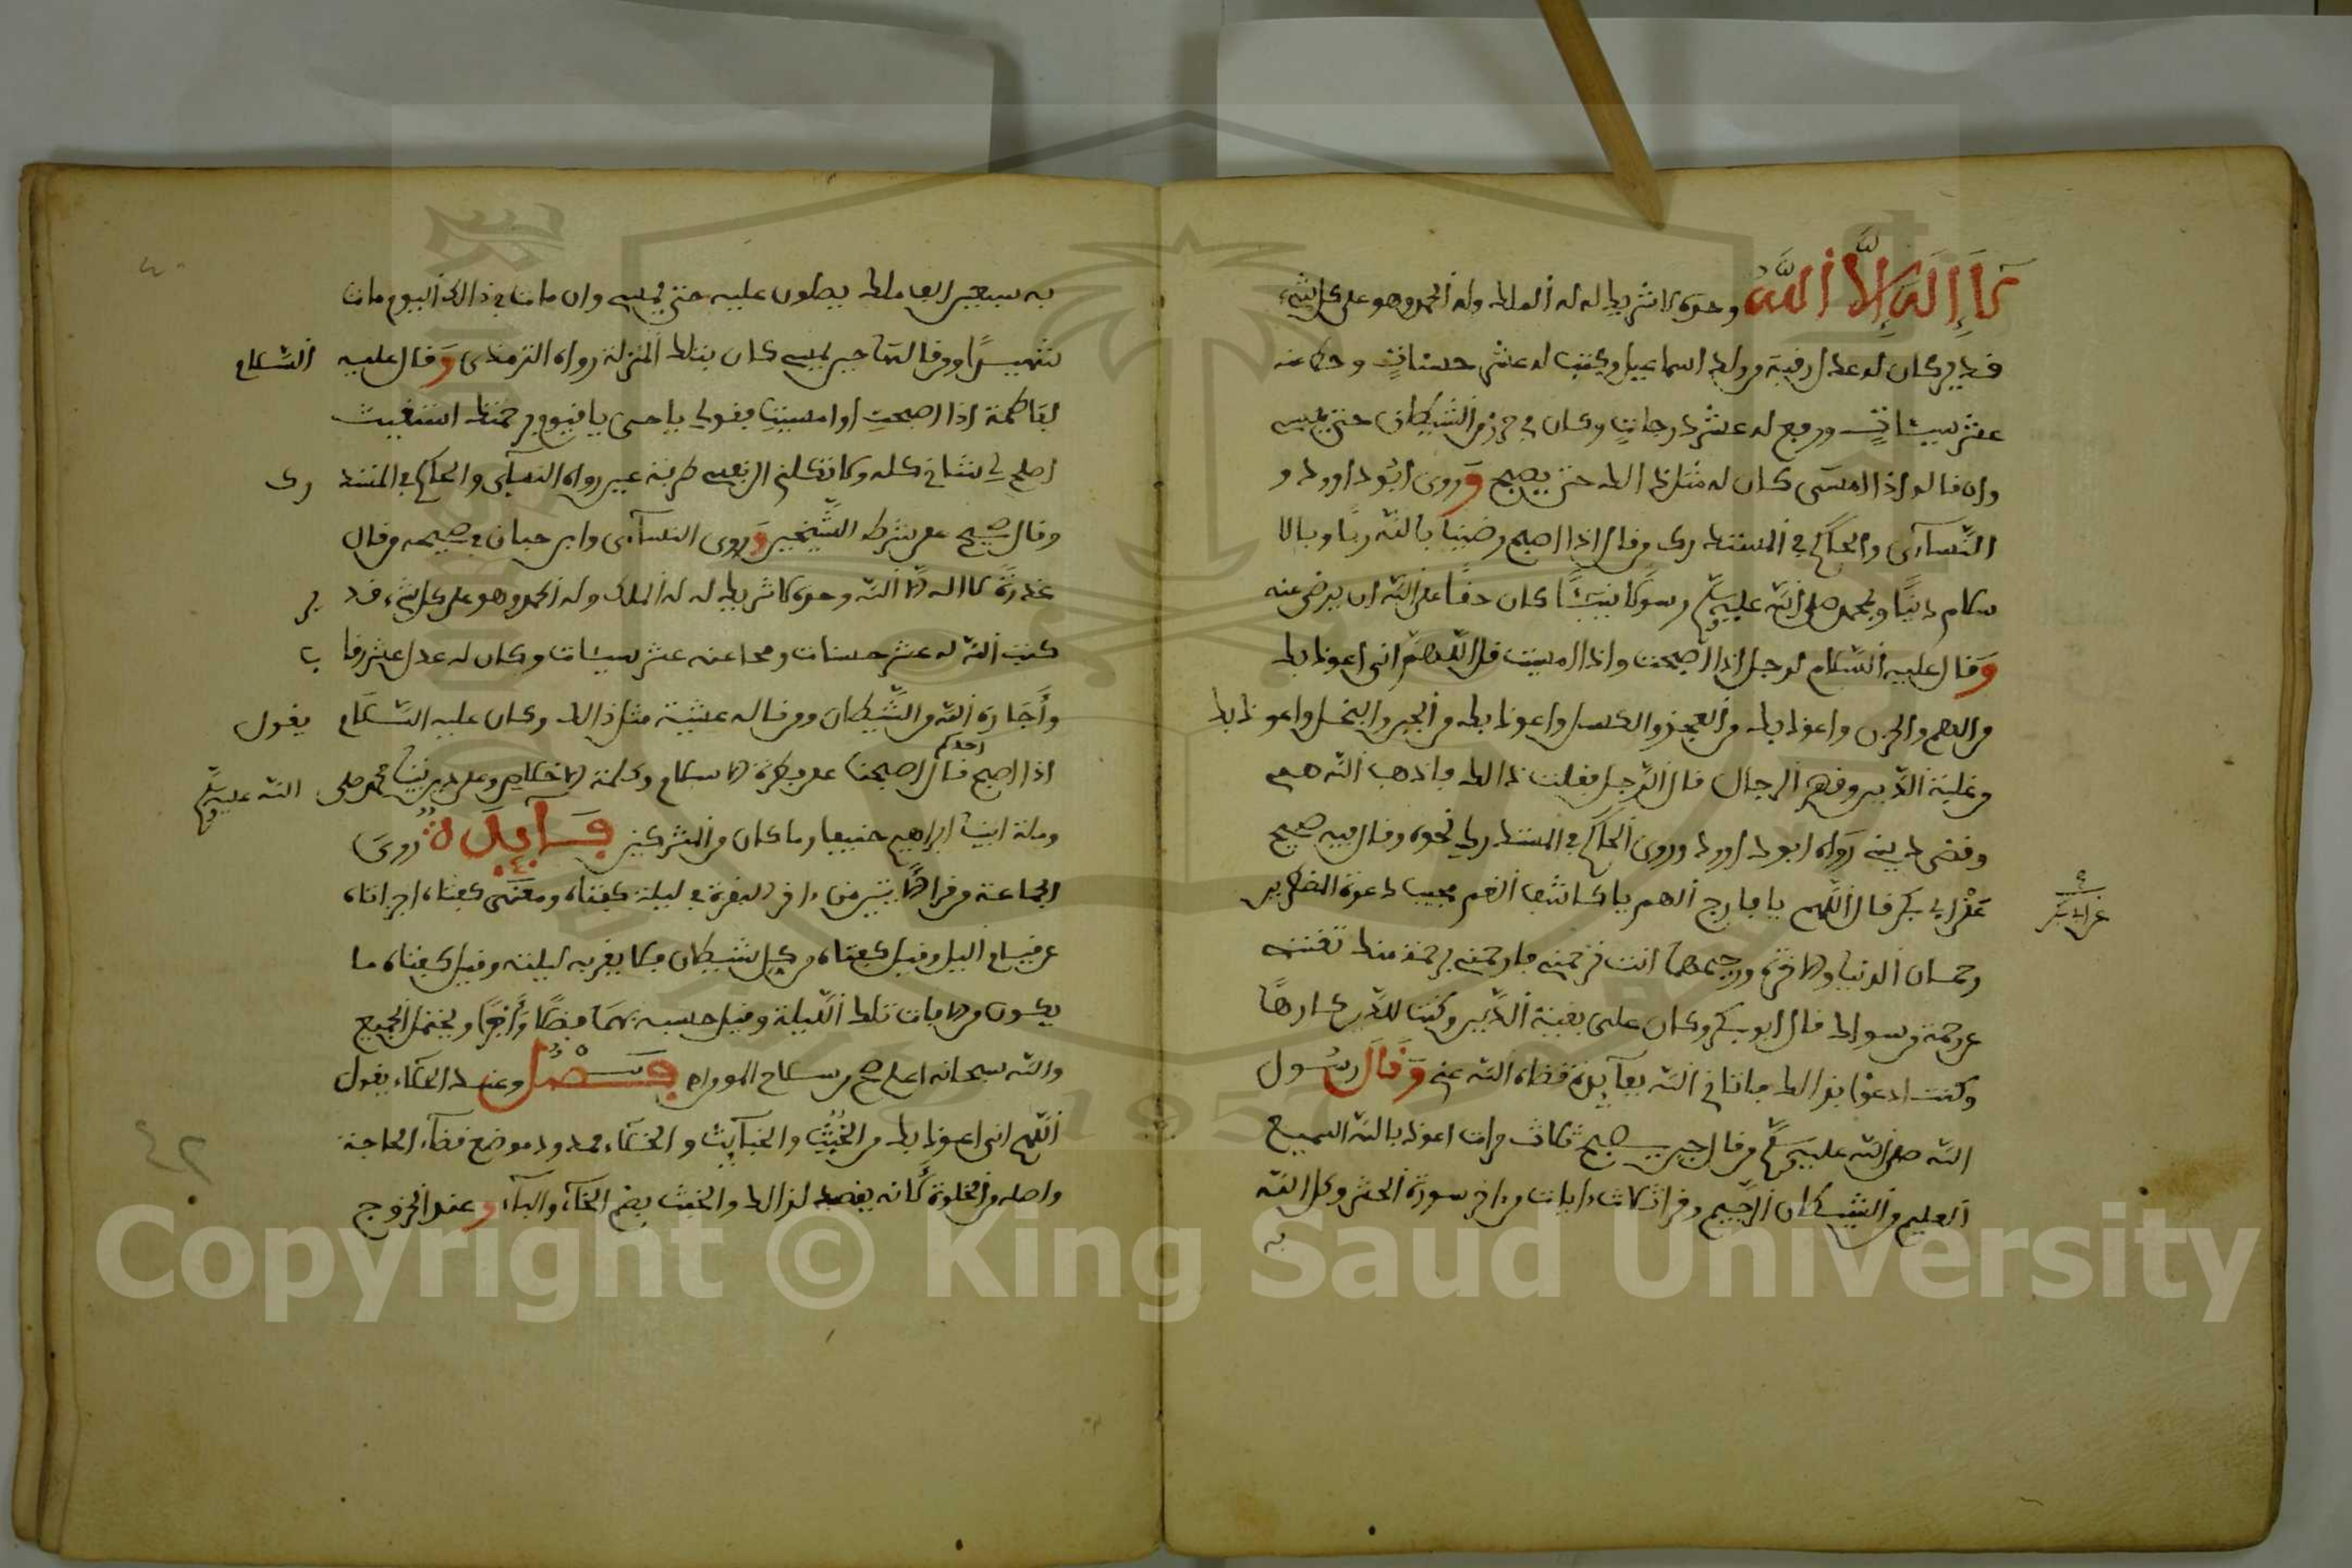 لا إله إلا الله وحده لا شريك له له الملك وله الحمد وهو على كل شيء
قدير كان له عدل رقبة من ولد اسماعيل وكتب له عشر حسنات وحط عنه
عشر سيئات ورفع له عشر درجات وكان في حرز من الشيطان حتى يمسي
وان قالها اذا امسى كان له مثل ذالك حتى يصبح وروى ابو داوود و
النسآءى والحاكم في المستدرك من قال اذا اصبح رضينا بالله ربا وبالا
سلام دينا وبمحمد صلى الله عليه وسلم رسولا نبيئا كان حقا على الله ان يرضى عنه
وقال عليه السلام لرجل اذا اصبحت واذا امسيت قل اللهم اني اعوذ بك
من الهم والحزن واعوذ بك من العجز والكسل واعوذ بك من الجبن والبخل واعوذ بك
من غلبة الدين وقهر الرجال قال الرجل ففعلت ذالك فاذهب الله همي
وقضى ديني رواه ابو داوود وروى الحاكم في المستدرك نحوه وقال فيه صحيح
عن ابي بكر قال اللهم يا فارج الهم يا كاشف الغم مجيب دعوة المضطرين
عن ابي بكر
رحمان الدنيا والاخرة ورحيمهما انت ترحمني فارحمني برحمة منك تغنني
عن رحمة من سواك قال ابو بكر وكان علي بقية الدين وكنت للدين كارها
وكنت ادعو بذالك فاتاني الله بفآئدة قضاه الله عني وقال رسول
الله صلى الله عليه وسلم من قال حين يصبح ثلاث مرات اعوذ بالله السميع
العليم من الشيطان الرجيم وقرا ثلاث ءايات من ءاخر سورة الحشر وكل الله
به
به سبعين الف ملك يصلون عليه حتى يمسي وان مات في ذالك اليوم مات
شهيدا ومن قالها حين يمسي كان بتلك المنزلة رواه الترمذى وقال عليه السلام
لفاطمة اذا اصبحت او امسيت فقولي يا حي يا قيوم برحمتك استغيث
اصلح لي شاني كله ولا تكلني الى نفسي طرفة عين رواه النسآئى والحاكم في المستدرك
وقال صحيح على شرط الشيخين وروى النسآءى وابن حبان في صحيحه من قال
غدوة لا اله الا الله وحده لا شريك له له الملك وله الحمد وهو على كل شيء قدير
كتب الله له عشر حسنات ومحا عنه عشر سيئات وكان له عدل عشر رقاب
وأجاره الله من الشيطان ومن قاله عشية مثل ذالك وكان عليه السلام يقول
اذا اصبح احدكم قال اصبحنا على فطرة الاسلام وكلمة الاخلاص وعلى دين نبينا محمد صلى الله عليه وسلم
وملة ابينا ابراهيم حنيفا وما كان من المشركين فآئدة روى
الجماعة من قرا الايتين من ءاخر البقرة في ليلة كفتاه ومعنى كفتاه اجزاتاه
عن قيام اليل وقيل كفتاه من كل شيطان فلا يقربه ليلته وقيل كفتاه ما
يكون من الافات تلك الليلة وقيل حسبه بهما فضلا وأجرا ويحتمل الجميع
والله سبحانه اعلم صح من سلاح المومن فصل وعند الخلاء يقول
اللهم اني اعوذ بك من الخبث والخبآئث والخلاء ممدود موضع قضآء الحاجة
واصله من الخلوة كأنه يقصد لذالك والخبث بضم الخآء والبآء وعند الخروج